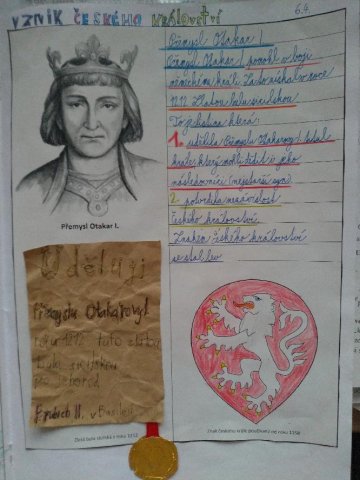 VZNIK ČESKÉHO KRÁLOVSTVÍ
6.4.
Přemysl Otakar I.
Přemysl Otakar I. pomohl v boji
německému králi. Za to získal v roce
1212 Zlatou bulu sicilskou
To je listina která:
1. udělila Přemyslu Otakarovi I. titul
krále, který mohli dědit i jeho
následovníci (nejstarší syn).
2. potvrdila nezávislost
Českého království.
Znakem českého království
se stal lev
Přemysl Otakar I.
Uděluji
Přemyslu Otakarovi I.
roku 1212 tuto zlatou
bulu sicilskou
pro
Fridrich II. v Basileji
Zlatá bula sicilská z roku 1212
Znak českého krále používaný od roku 1250